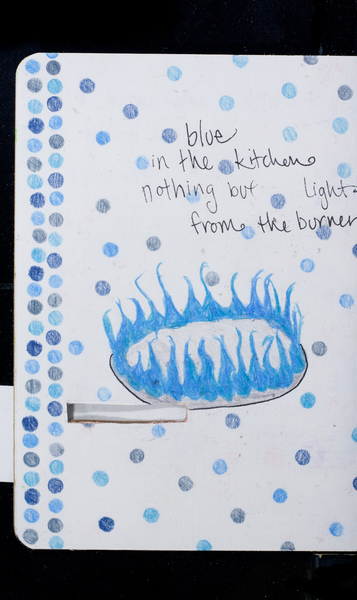 blue
in the kitchen
nothing but light
from the burner